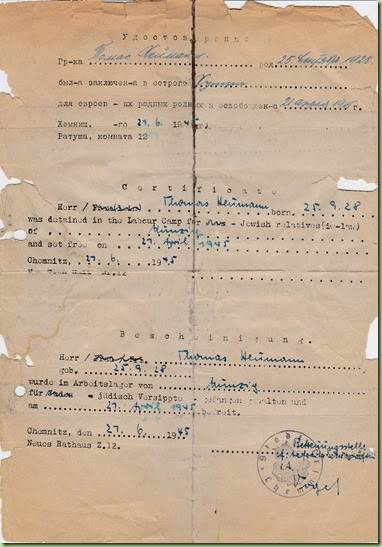 Удостоверение
Гр-ка Томас Хейман род. 25 Сентября 1928.
был-а заключен-а в остроге
для евреев - их родных родних и освобожден-а 21 апреля 1945 г.
Хемниц, -го 27.6. 1945г.
Ратуша, комната 12
Certificate
Herr / Thomas Heumann born. 25.9.28
was detained in the Labour Camp for - Jewish relatives(in-law)
of Münzig
and set free on 21. April 1945
Chemnitz, 27.6. 1945
Town Hall Nr.12
Bescheinigung.
Herr / Thomas Heumann
geb. 25.9.28
wurde im Arbeitslager von Münzig
für - jüdisch Versippte - gefangen gehalten und
am 21. April 1945 befreit.
Chemnitz, den 27.6. 1945
Neues Rathaus Z.12.
Betreuungsstelle
i.A.
Vogel